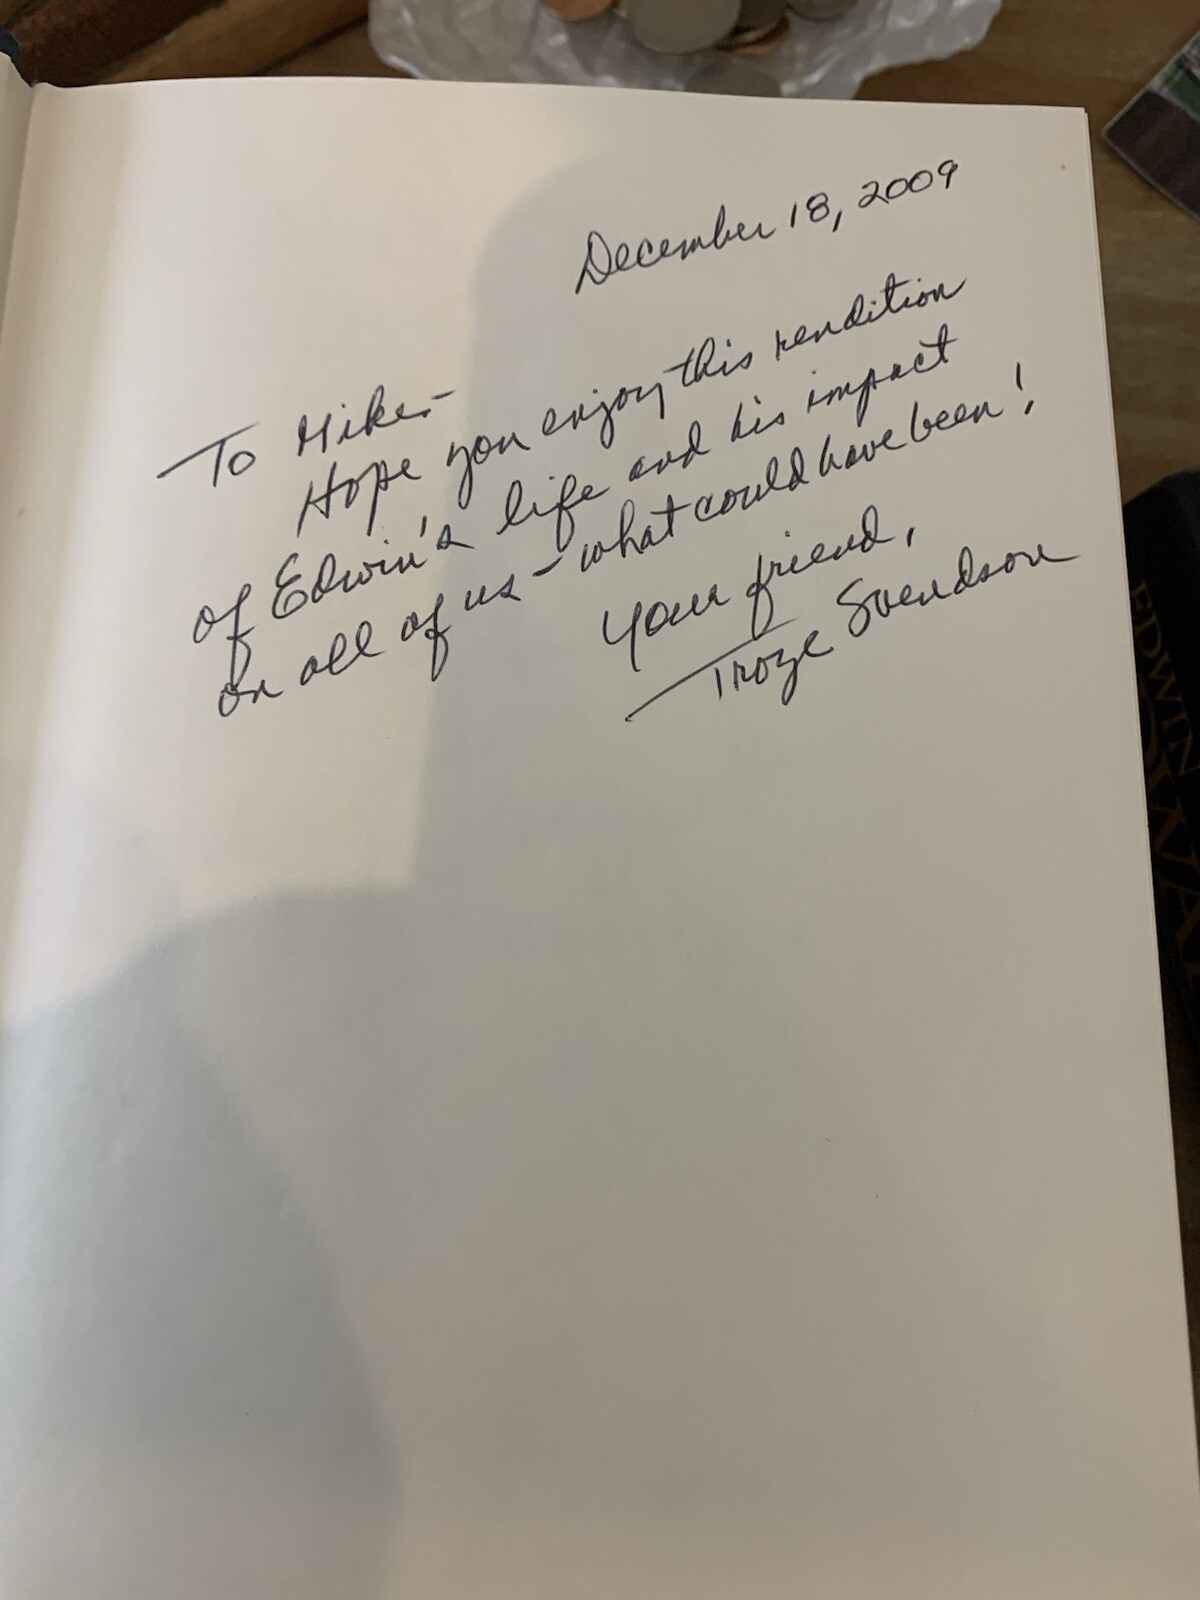 December 18, 2009
To Mike:-
Hope you enjoy this rendition
of Edwin's life and his impact
on all of us – what could have been!
Your friend,
Troze Svendson
EDWIN